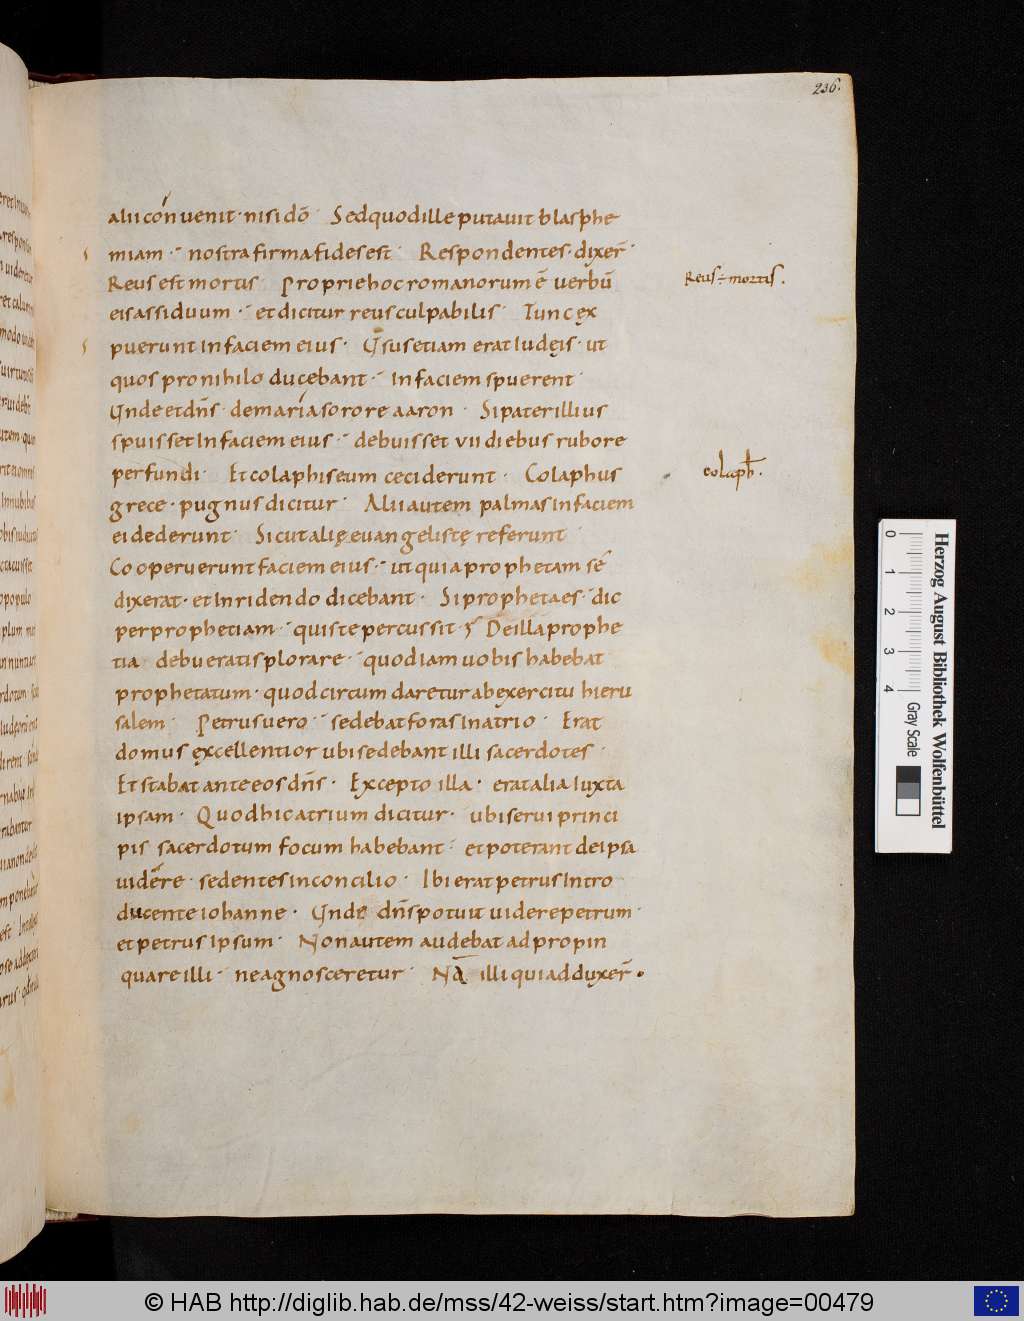 236.
alii con uenit · nisi dō · Sed quod ille putauit blasphe
miam · nostra firma fides est · Respondentes · dixeř ·
Reus est mortis Proprie hoc romanorum ē uerbū
Reus ÷ mortis .
eis assiduum · et dicitur reus culpabilis · Tunc ęx
puerunt in faciem eius · Q͞su s etiam erat Iudęis · ut
quos pro nihilo ducebant · in faciem spuerent ·
Unde et dn̄s · de maria sorore aaron · Si pater illius
spuisset in faciem eius · debuisset vii diebus rubore
perfundi · Et colaphis eum ceciderunt · Colaphus
colaph .
grece · pugnus dicitur · Alii autem palmas in faciem
ei dederunt · Sicut alię euangelistę referunt ·
Cooperuerunt faciem eius · ut quia prophetam sē
dixerat · et inridendo dicebant · Si propheta es · dic
per prophetiam · quis te percussit ; De illa prophe
tia debueratis plorare · quod iam uobis habebat
prophetatum · quod circum daretur ab exercitu hieru
salem · Petrus uero · sedebat foras in atrio · Erat
domus ęxcellentior ubi sedebant illi sacerdotes ·
Et stabat ante eos dn̄s · Excepto illa · erat alia iuxta
ipsam · Quod hic atrium dicitur · ubi serui princi
pis sacerdotum focum habebant · et poterant de ipsa
uidere · sedentes in concilio · Ibi erat petrus intro
ducente iohanne · Unde dn̄s potuit uidere petrum ·
et petrus ipsum · Non autem audebat ad propin
quare illi · ne agnosceretur · N̄ā illi qui adduxeř .
0 1 2 3 4
Herzog August Bibliothek Wolfenbüttel
Gray Scale
© HAB http://diglib.hab.de/mss/42-weiss/start.htm?image=00479